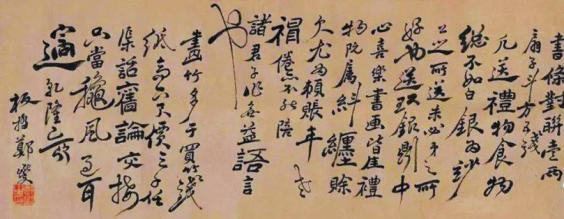 書條對聯壹兩
扇子斗方五錢
凡送禮物食物
總不如白銀為妙
公之所送未必弟之所
好也送現銀則中
心喜樂書画皆佳禮
物既屬糾纏賒
欠尤為賴賬年老
體倦亦不能陪
諸君子作無益語言
也
畫竹多于買竹錢
紙高六尺價三千任
渠話舊論交接
只當穐風過耳
邊 乾隆己卯
板橋鄭燮